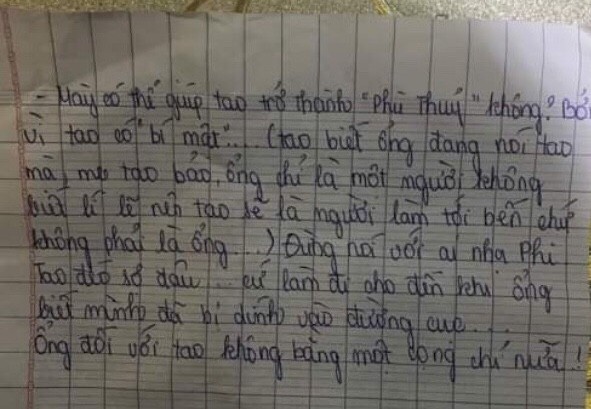 - Mày có thể giúp tao trở thành "Phù Thuỷ" không? Bởi
vì tao có "bí mật"... (tao biết ông đang nói tao
mà, mẹ tao bảo, ông chỉ là một người không
biết lí lẽ nên tao sẽ là người làm tới bến chứ
không phải là ông...) Đừng nói với ai nha Phi
Tao đéo sợ đâu... cứ làm đi cho đến khi ông
biết mình đã bị dính vào đường cục....
Ông đối với tao không bằng một cọng chỉ nữa!